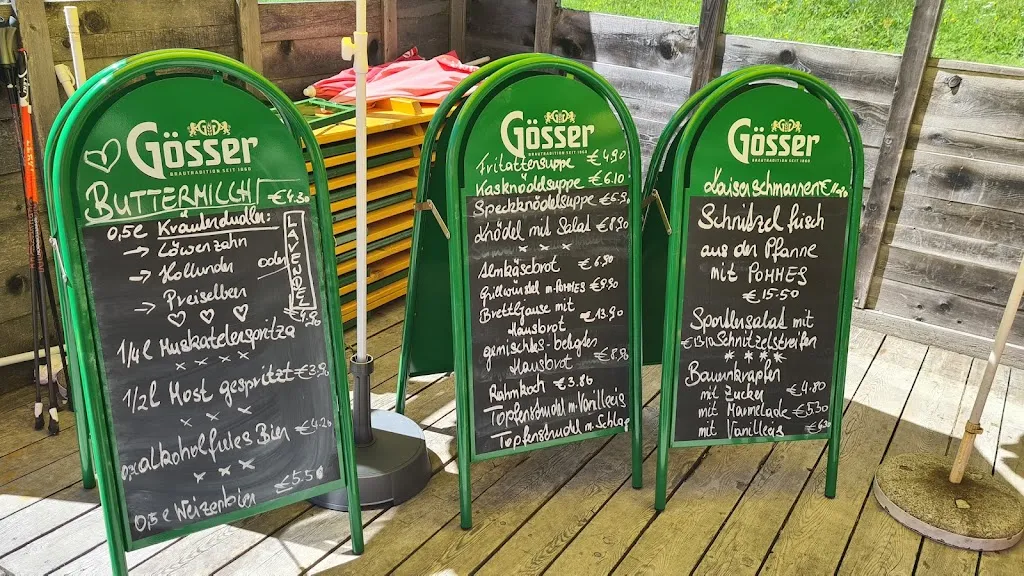 Gösser
BRAUTRADITION SEIT 1860
BUTTERMILCH €4.30
0,5l Kräuterdudler:
→ Löwenzahn
→ Hollunder oder
LAVENDEL
→ Preiselbeer
1/4l Muskatellerspritza
1/2l Most gespritzt €3.90
alkoholfreies Bier €4.20
0,5l Weizenbier €5.50
Gösser
BRAUTRADITION SEIT 1860
Frittatensuppe €4.90
Kasknödelsuppe €6.10
Speckknödelsuppe
Knödel mit Salat €8.90
Almkäsebrot €6.90
Grillwürstel m. POMMES €9.90
Brettljause mit
Hausbrot €13.90
gemischtes-belegtes
Hausbrot €8.90
Rahmkoch €3.80
Topfenstrudel m. Vanilleeis
Topfenstrudel m. Schlag
Gösser
BRAUTRADITION SEIT 1860
Kaiserschmarren
Schnitzel frisch
aus der Pfanne
mit POMMES
€15.50
Sportlersalat mit
Schnitzelstreifen
Bauernkrapfen
mit Zucker €4.80
mit Marmelade €5.30
mit Vanilleeis